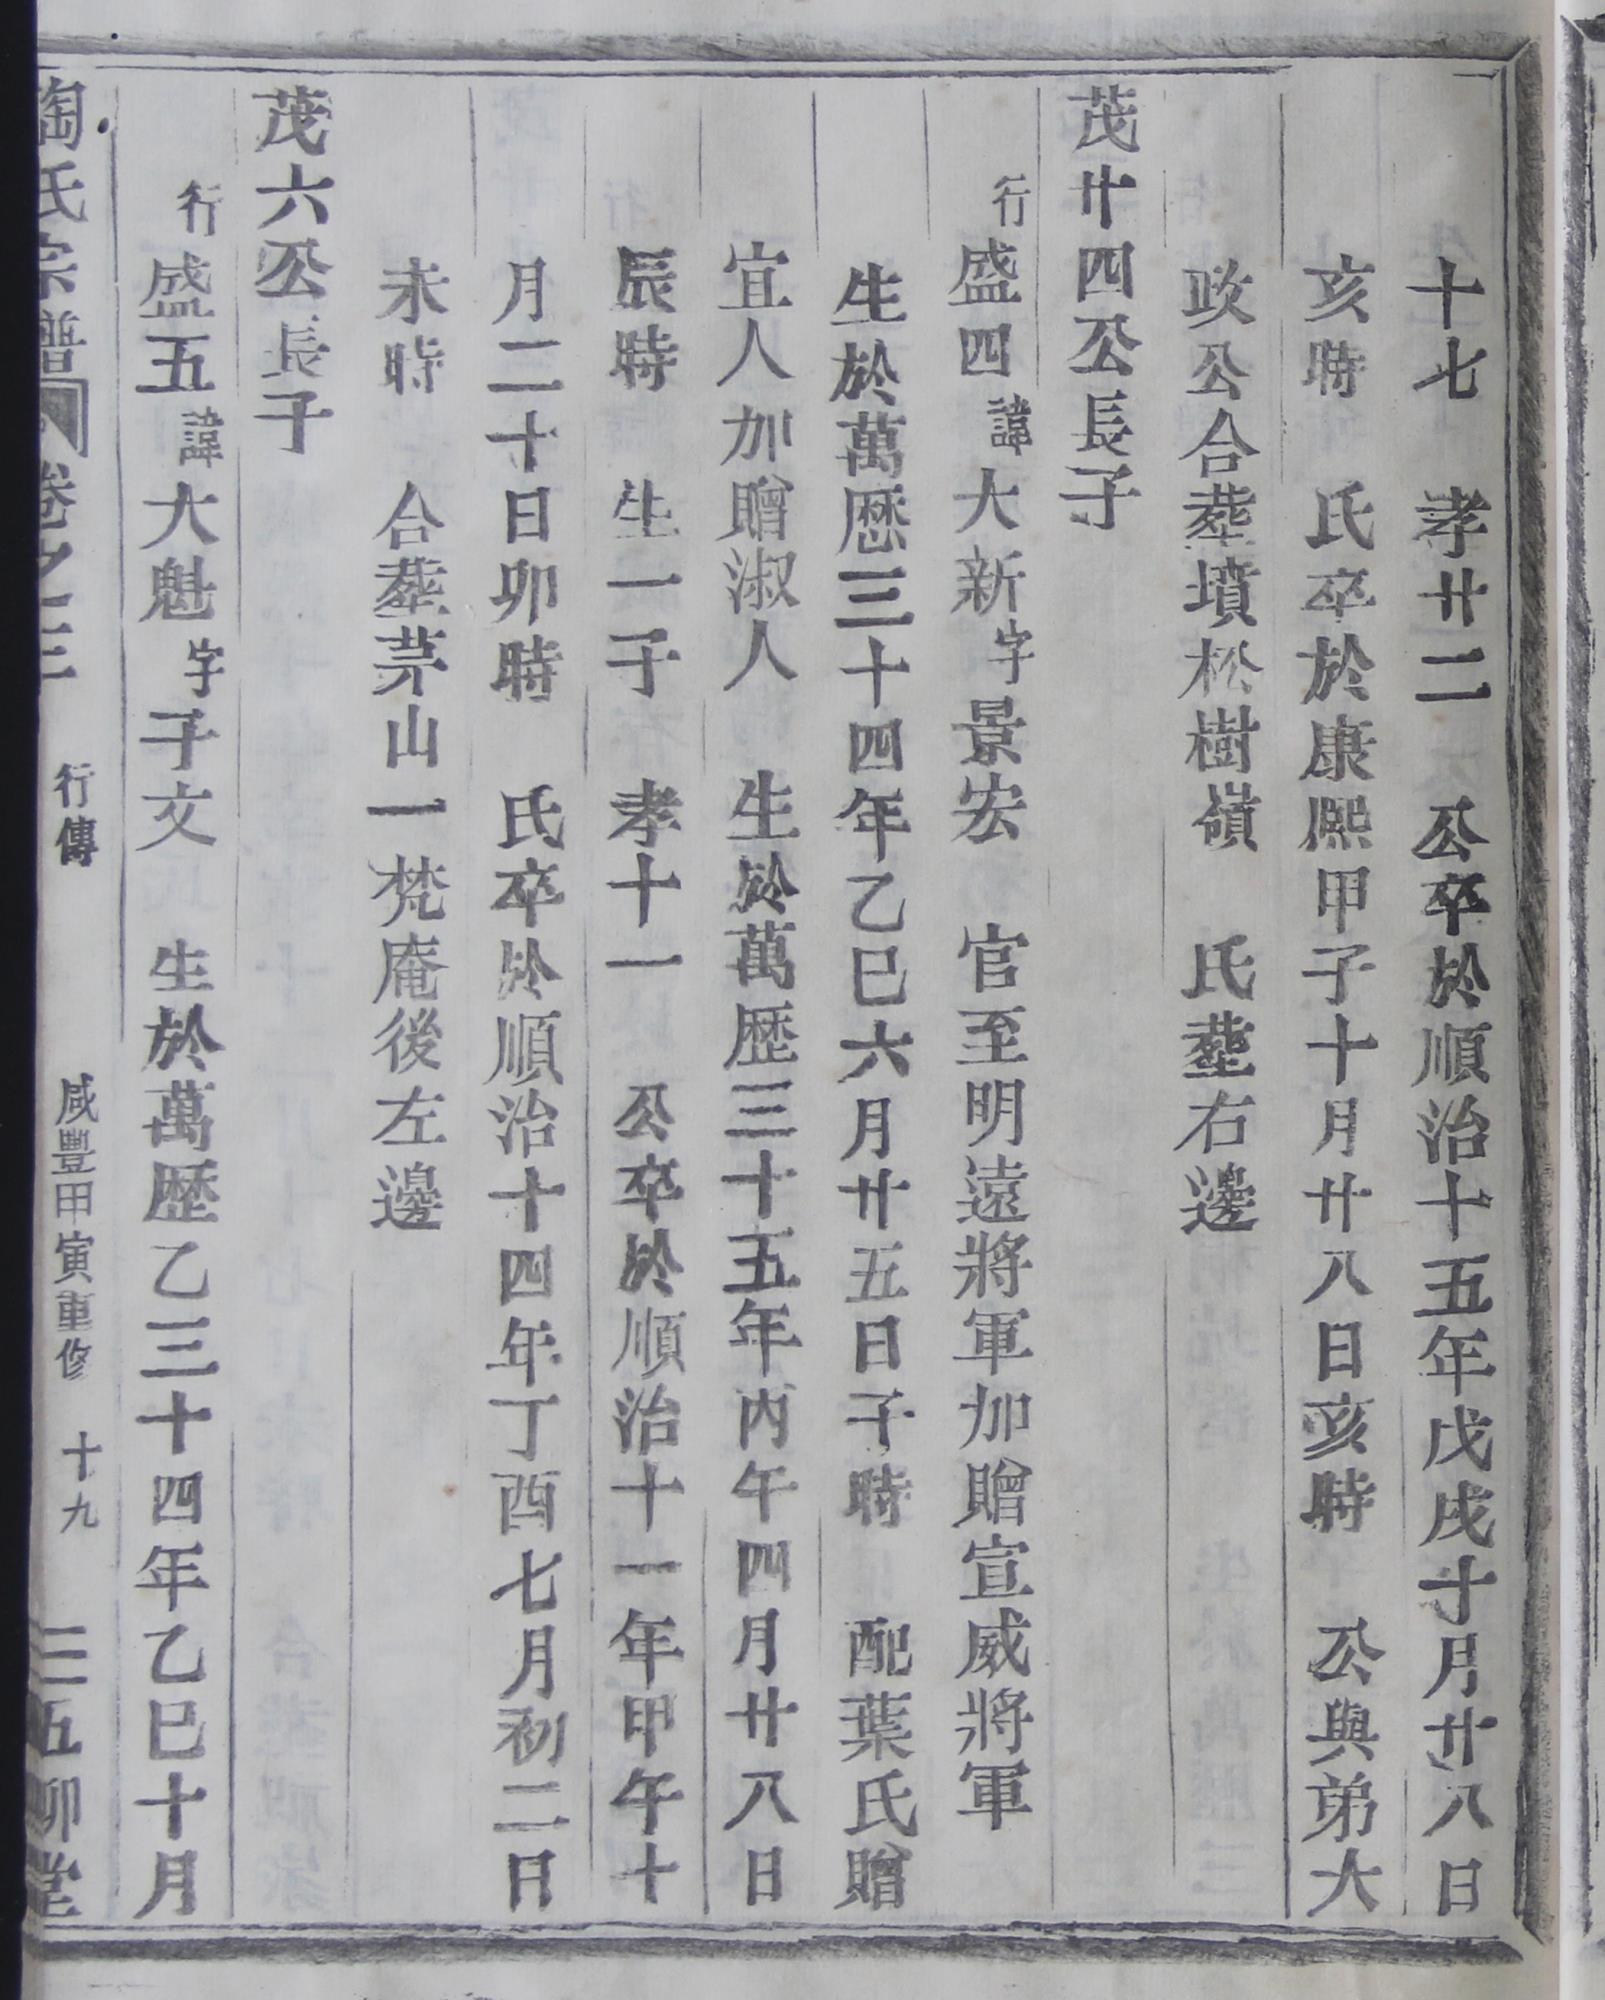 十七 孝廿二 公卒於順治十五年戊戌十月廿八日
亥時 氏卒於康熈甲子十月廿八日亥時 公與弟大
政公合塟墳松樹嶺 氏塟右邊
茂廿四公長子
行盛四諱大新字景宏 官至明遠將軍加贈宣威將軍
生於萬歷三十四年乙巳六月廿五日子時 配葉氏贈
宜人加贈淑人 生於萬歷三十五年丙午四月廿八日
辰時 生一子 孝十一 公卒於順治十一年甲午十
月二十日卯時 氏卒於順治十四年丁酉七月初二日
未時 合塟茅山一梵庵後左邊
茂六公長子
行盛五諱大魁字子文 生於萬歷乙三十四年乙巳十月
陶氏宗譜 卷之三 行傳 咸豐甲寅重修 十九 五柳堂